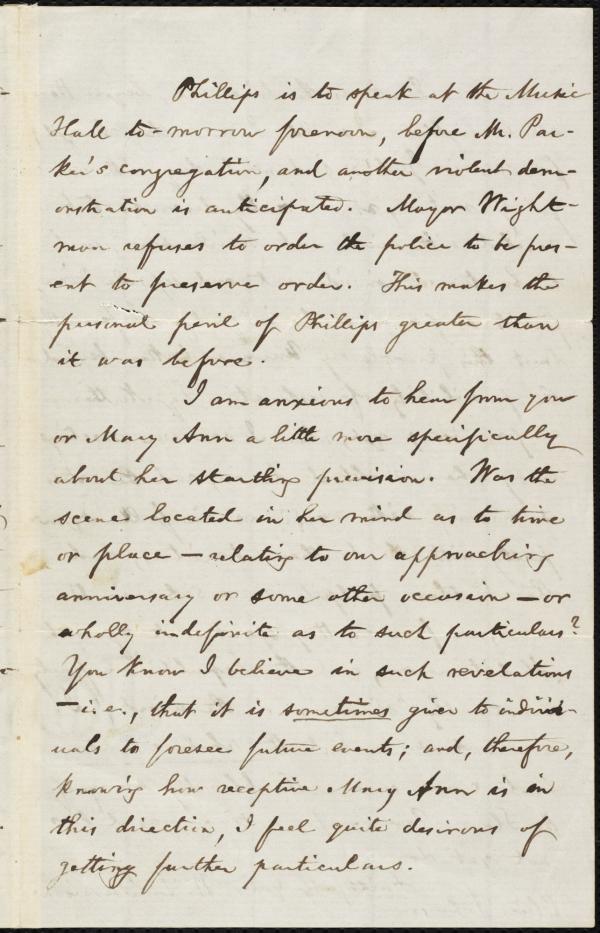 Phillips is to speak at the Music
Hall to-morrow forenoon, before Mr. Par-
ker's congregation, and another violent dem-
onstration is anticipated. Mayor Wight-
man refuses to order the police to be pres-
ent to preserve order. This makes the
personal peril of Phillips greater than
it was before.
I am anxious to hear from you
or Mary Ann a little more specifically
about her startling prevision. Was the
scene located in her mind as to time
or place — relating to our approaching
anniversary or some other occasion — or
wholly indefinite as to such particulars?
You know I believe in such revelations
— i.e., that it is sometimes given to individ-
uals to foresee future events; and, therefore,
knowing how receptive Mary Ann is in
this direction, I feel quite desirous of
getting further particulars.